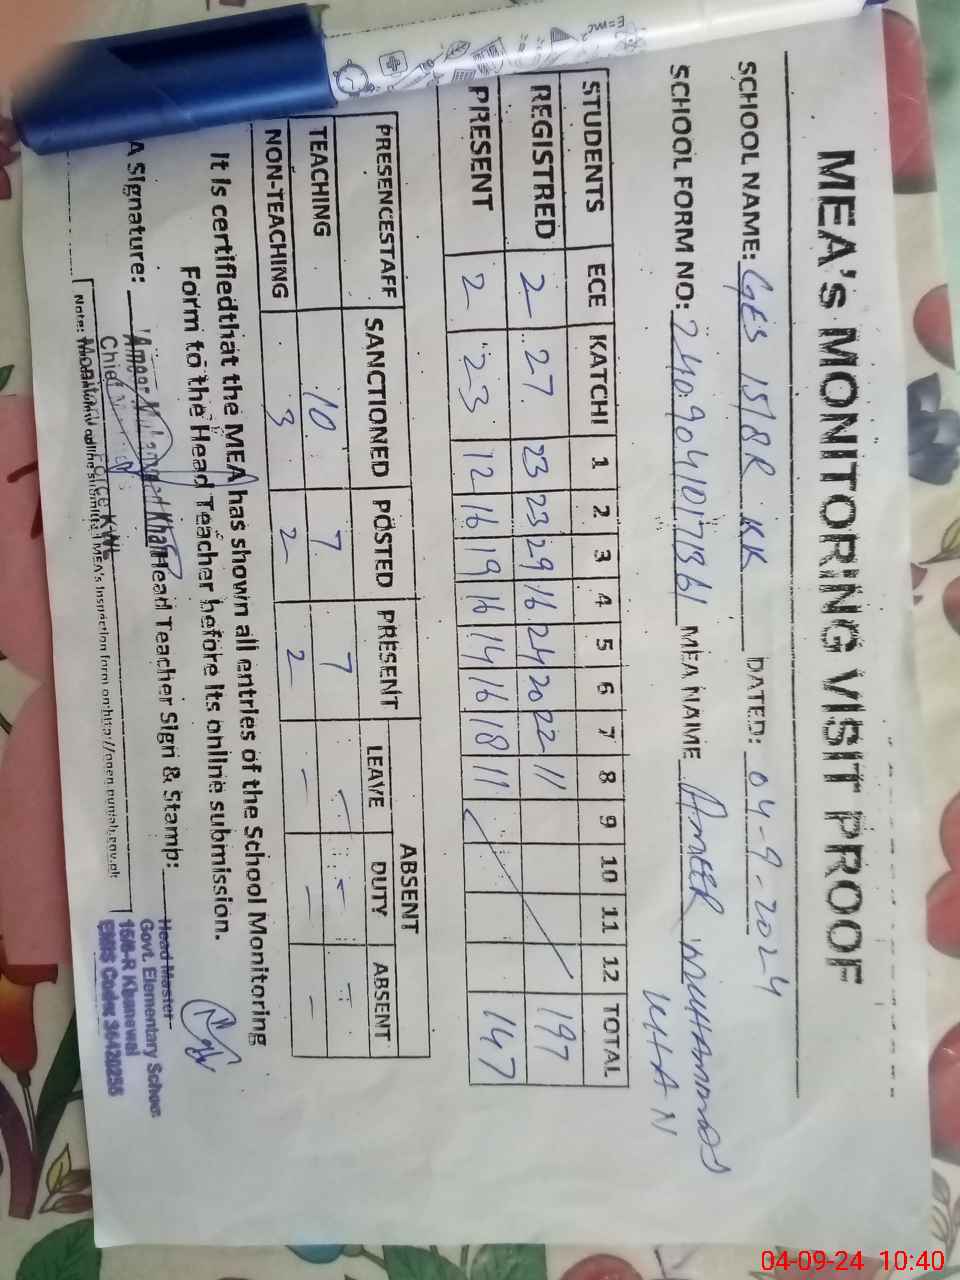 MEA's MONITORING VISIT PROOF
SCHOOL NAME: GES 15/8R KK DATED: 04-9-2024
SCHOOL FORM NO: MEA NAME AMEER MUHAMMAD
KHAN
STUDENTS ECE KATCHI 1 2 3 4 5 6 7 8 9 10 11 12 TOTAL
REGISTRED 2 27 23 23 29 16 24 20 22 11 197
PRESENT 2 23 12 16 19 16 14 16 18 11 147
PRESENCESTAFF SANCTIONED POSTED PRESENT ABSENT
LEAVE DUTY ABSENT
TEACHING 10 7 7 - - -
NON-TEACHING 3 2 2 - - -
It is certifiedthat the MEA has shown all entries of the School Monitoring
Form to the Head Teacher before its online submission.
A Signature: Head Teacher Sign & Stamp:
Khan
Chief
Note: MEA's Inspection form on http://open.punjab.gov.pk
Head Master
Govt. Elementary School
15/8-R Khanewal
EMIS Code: 36420256
E=mc²
04-09-24 10:40